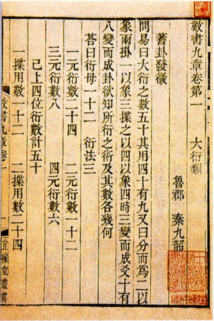 數書九章卷第一　大衍類
魯郡　秦九韶
蓍卦發微
問易曰大衍之數五十其用四十有九又曰分而為二以
象兩掛一以象三揲之以四以象四時三變而成爻十有
八變而成卦欲知所衍之術及其數各幾何
荅曰衍母一十二　衍法三
一元衍數二十四　二元衍數一十二
三元衍數八　四元衍數六
已上四位衍數計五十
一揲用數一十二　二揲用數二十四
數書九章卷一
宜稼堂叢書